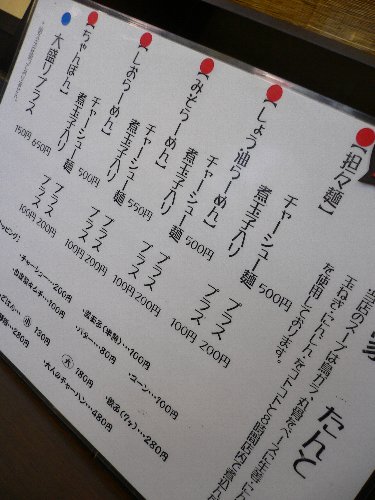 たんと
当店のスープは鶏ガラ、丸鶏をベースに生姜に
玉ねぎ、にんじんをコトコトと8時間
を使用しております。
【担々麺】
【しょう油らーめん】 500円
チャーシュー麺 プラス 200円
煮玉子入り プラス 100円
【みそらーめん】 500円
チャーシュー麺 プラス 200円
煮玉子入り プラス 100円
【しおらーめん】 550円
チャーシュー麺 プラス 200円
煮玉子入り プラス 100円
【ちゃんぽん】 500円
チャーシュー麺 プラス 200円
煮玉子入り プラス 100円
650円
大盛りプラス 150円
ッピング】
・チャーシュー…200円
・白菜キムチ…100円
・バター…80円
・コーン…100円
ごはん… 小 130円
大 180円
・大人のチャーハン…480円
・餃子(7ケ)…280円
280円